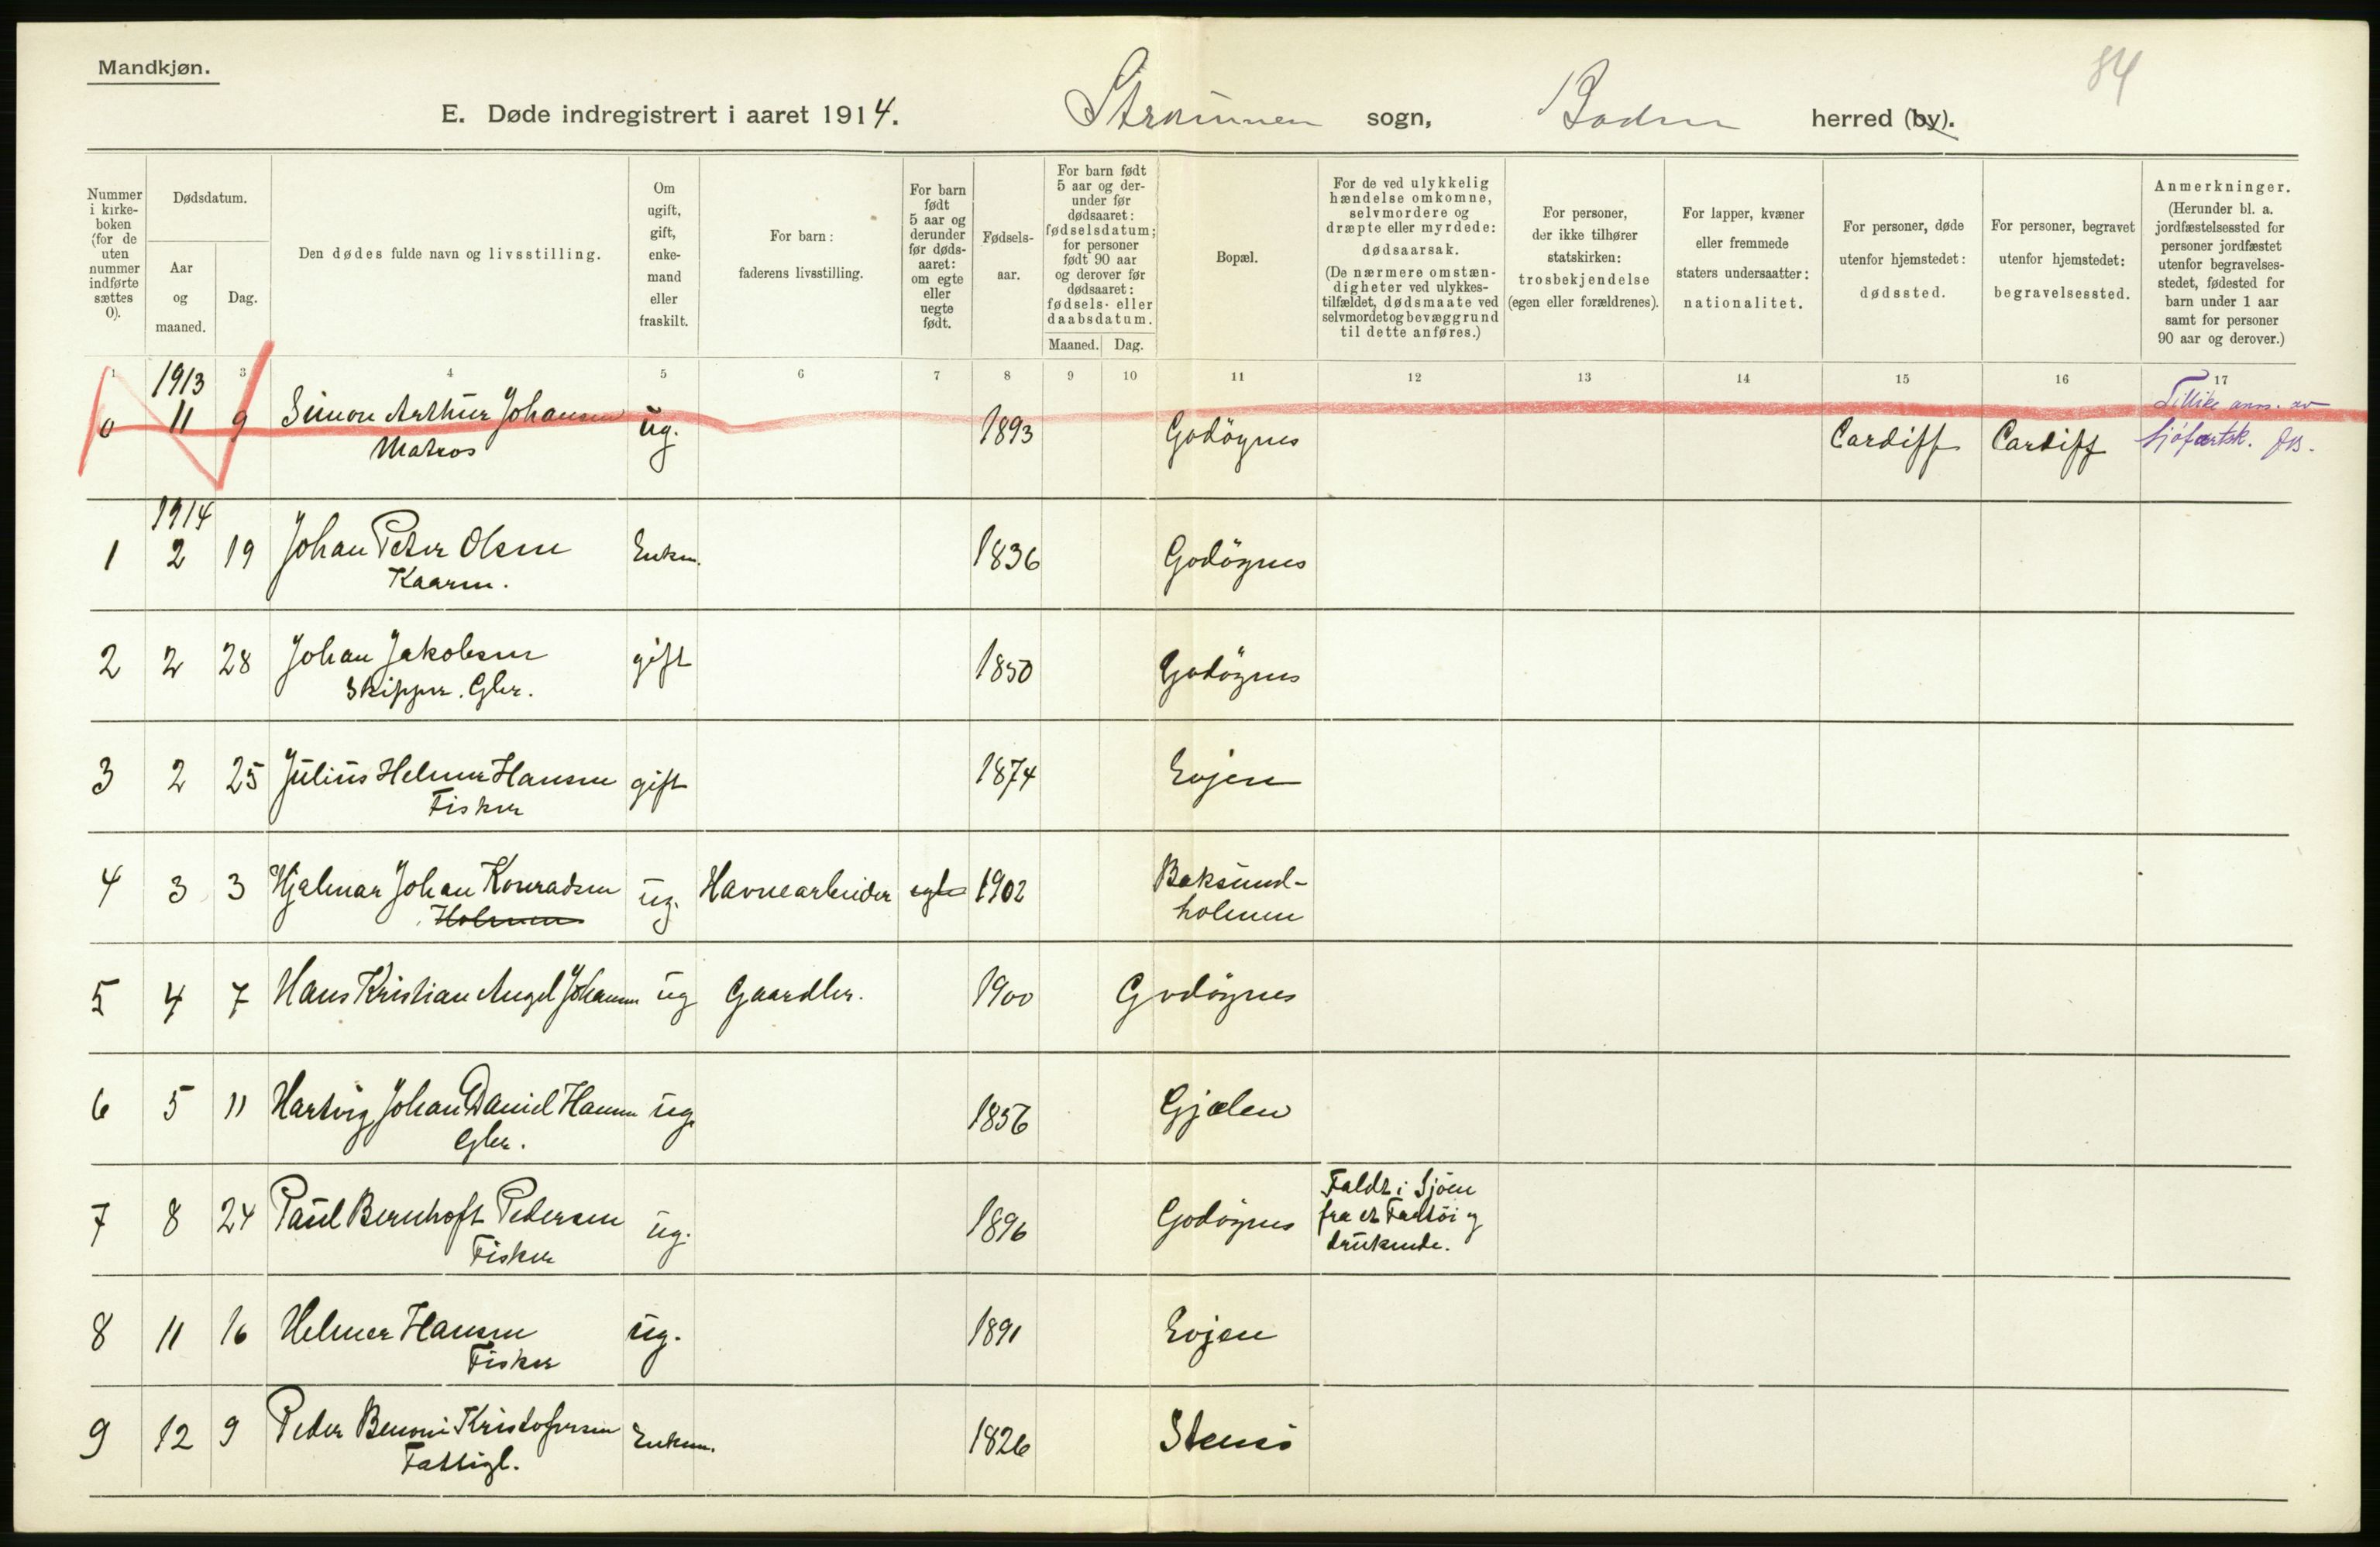 Mandkjøn.
84
E. Døde indregistrert i aaret 1914. Strømmen sogn, Bodin herred (by).
Nummer i kirke-boken (for de uten nummer indførte sættes 0).
Dødsdatum.
Aar og maaned.
Dag.
Den dødes fulde navn og livsstilling.
Om ugift, gift, enke-mand eller fraskilt.
For barn: faderens livsstilling.
For barn født 5 aar og derunder før døds-aaret: om egte eller uegte født.
Fødsels-aar.
For barn født 5 aar og der-under før dødsaaret: fødselsdatum; for personer født 90 aar og derover før dødsaaret: fødsels- eller daabsdatum.
Maaned. Dag.
Bopæl.
For de ved ulykkelig hændelse omkomne, selvmordere og dræpte eller myrdede: dødsaarsak. (De nærmere omstæn-digheter ved ulykkes-tilfældet, dødsmaate ved selvmordet og bevæggrund til dette anføres.)
For personer, der ikke tilhører statskirken: trosbekjendelse (egen eller forældrenes).
For lapper, kvæner eller fremmede staters undersaatter: nationalitet.
For personer, døde utenfor hjemstedet: dødssted.
For personer, begravet utenfor hjemstedet: begravelsessted.
Anmerkninger. (Herunder bl. a. jordfæstelsessted for personer jordfæstet utenfor begravelses-stedet, fødested for barn under 1 aar samt for personer 90 aar og derover.)
1 3 4 5 6 7 8 9 10 11 12 13 14 15 16 17
1913
0 11 9 Simon Arthur Johansen ug. 1893 Godøynes Cardiff Cardiff Tillike anm. av
Matros sjøfartsk.
1914
1 2 19 Johan Peter Olsen Enkm. 1836 Godøynes
Kaarm.
2 2 28 Johan Jakobsen gift 1850 Godøynes
Skipper. Gbr.
3 2 25 Julius Helmer Hansen gift 1874 Evjen
Fisker
4 3 3 Hjalmar Johan Konradsen ug. Havnearbeider egte 1902 Baksund-
Holmen holmen
5 4 7 Hans Kristian Angel Johansen ug Gaardbr. 1900 Godøynes
6 5 11 Hartvig Johan Daniel Hansen ug. 1856 Gjælen
Gbr.
7 8 24 Paul Bernhoft Pedersen ug. 1896 Godøynes Faldt i Sjøen
Fisker fra et Fartøi og
druknede.
8 11 16 Helmer Hansen ug. 1891 Evjen
Fisker
9 12 9 Peder Benoni Kristofersen Enkm. 1826 Stensø
Fattigl.